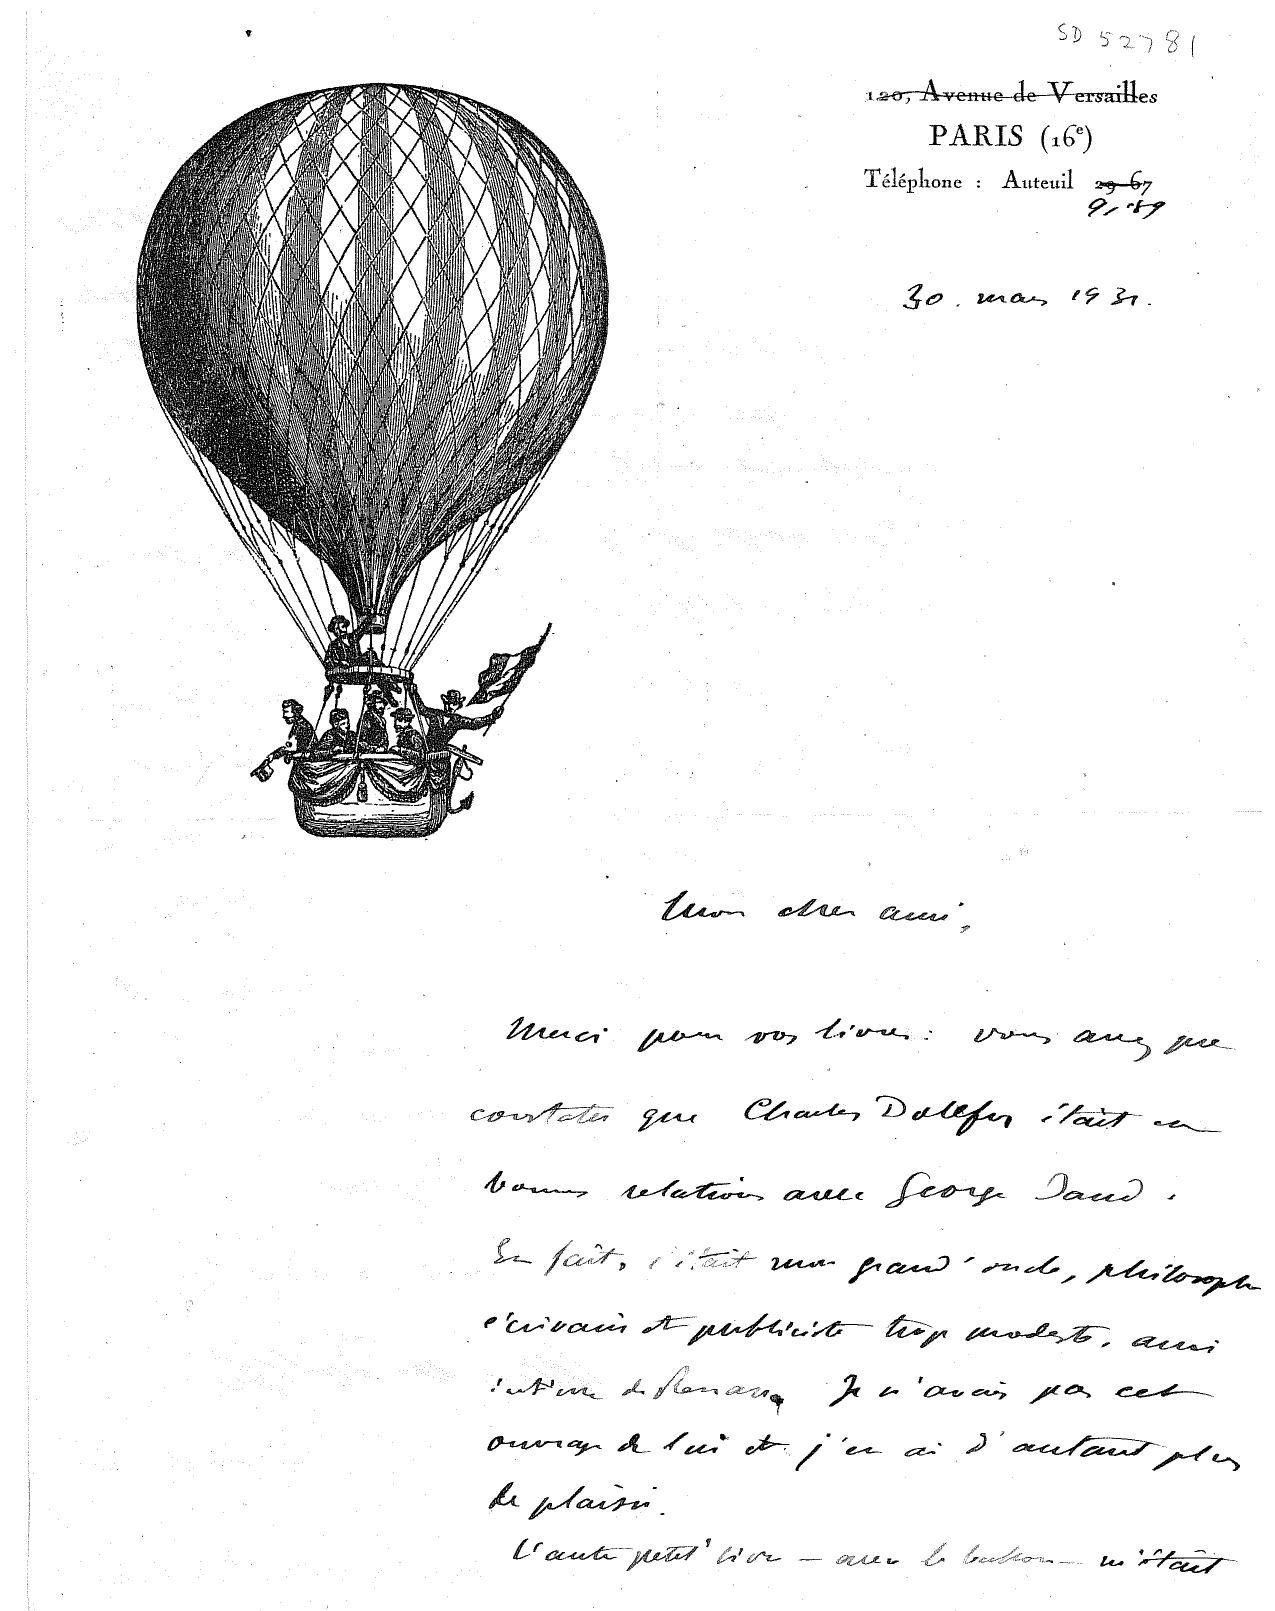 SD 52781
120, Avenue de Versailles
PARIS (16e)
Téléphone : Auteuil 29-67
30. mars 1931.
Mon cher ami,
Merci pour vos livres : vous avez pu
constater que Charles Dollfus était en
bonnes relations avec George Sand.
En fait, c'était mon grand'oncle, philosophe
écrivain et publiciste trop modeste, ami
intime de Renan. Je n'avais pas cet
ouvrage de lui et j'en ai d'autant plus
de plaisir.
L'autre petit livre – avec le ballon – m'était